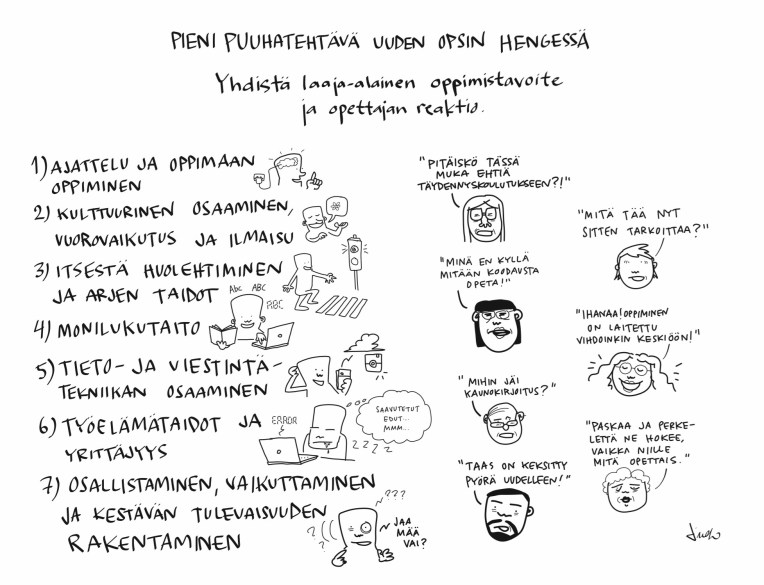 PIENI PUUHATEHTÄVÄ UUDEN OPSIN HENGESSÄ
Yhdistä laaja-alainen oppimistavoite
ja opettajan reaktio.
1) AJATTELU JA OPPIMAAN
OPPIMINEN
2) KULTTUURINEN OSAAMINEN,
VUOROVAIKUTUS JA ILMAISU
3) ITSESTÄ HUOLEHTIMINEN
JA ARJEN TAIDOT
ABC ABC
ABC
4) MONILUKUTAITO
5) TIETO- JA VIESTINTÄ-
TEKNIIKAN OSAAMINEN
6) TYÖELÄMÄTAIDOT JA
YRITTÄJYYS
ERROR
SAAVUTETUT
EDUT...
MMM...
ZZZZ
7) OSALLISTAMINEN, VAIKUTTAMINEN
JA KESTÄVÄN TULEVAISUUDEN
RAKENTAMINEN
???
JAA
MÄÄ
VAI?
"PITÄISKÖ TÄSSÄ
MUKA EHTIÄ
TÄYDENNYSKOULUTUKSEEN?!"
"MITÄ TÄÄ NYT
SITTEN TARKOITTAA?"
"MINÄ EN KYLLÄ
MITÄÄN KOODAUSTA
OPETA!"
"IHANAA! OPPIMINEN
ON LAITETTU
VIHDOINKIN KESKIÖÖN!"
"MIHIN JÄI
KAUNOKIRJOITUS?"
"PASKAA JA PERKE-
LETTÄ NE HOKEE,
VAIKKA NIILLE
MITÄ OPETTAIS."
"TAAS ON KEKSITTY
PYÖRÄ UUDELLEEN!"